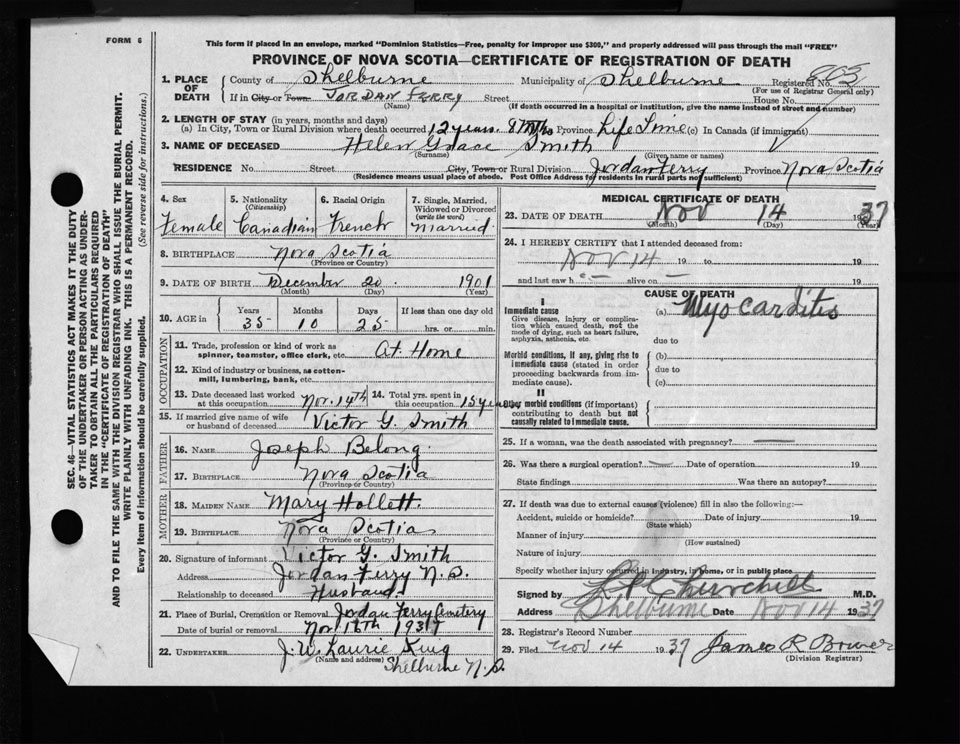 FORM 6
This form if placed in an envelope, marked "Dominion Statistics—Free, penalty for improper use $300," and properly addressed will pass through the mail "FREE"
PROVINCE OF NOVA SCOTIA—CERTIFICATE OF REGISTRATION OF DEATH
1. PLACE OF DEATH
County of Shelburne Municipality of Shelburne Registered No.
(For use of Registrar General only)
If in City or Town JORDAN FERRY Street House No.
(Name) (If death occurred in a hospital or institution, give the name instead of street and number)
2. LENGTH OF STAY (in years, months and days)
(a) In City, Town or Rural Division where death occurred 12 years. 8 Mths Province Life Time (c) In Canada (if immigrant)
3. NAME OF DECEASED Helen Grace Smith
(Surname) (Given name or names)
RESIDENCE No. Street City, Town or Rural Division Jordan Ferry Province Nova Scotia
(Residence means usual place of abode. Post Office Address for residents in rural parts not sufficient)
4. Sex Female
5. Nationality (Citizenship) Canadian
6. Racial Origin French
7. Single, Married, Widowed or Divorced (write the word) Married.
8. BIRTHPLACE Nova Scotia
(Province or Country)
9. DATE OF BIRTH December 20. 1901
(Month) (Day) (Year)
10. AGE in Years 35 Months 10 Days 25 If less than one day old hrs. or min.
OCCUPATION
11. Trade, profession or kind of work as spinner, teamster, office clerk, etc. At Home
12. Kind of industry or business, as cotton-mill, lumbering, bank, etc.
13. Date deceased last worked at this occupation Nov. 14th
14. Total yrs. spent in this occupation 15 years
15. If married give name of wife or husband of deceased Victor G. Smith
FATHER
16. NAME Joseph Belong
17. BIRTHPLACE Nova Scotia
(Province or Country)
MOTHER
18. MAIDEN NAME Mary Hollett.
19. BIRTHPLACE Nova Scotia
(Province or Country)
20. Signature of informant Victor G. Smith
Address Jordan Ferry N.S.
Relationship to deceased Husband
21. Place of Burial, Cremation or Removal Jordan Ferry Cemetery
Date of burial or removal Nov 16th 1937
22. UNDERTAKER J. W. Laurie King
(Name and address) Shelburne N.S.
MEDICAL CERTIFICATE OF DEATH
23. DATE OF DEATH Nov 14 1937
(Month) (Day) (Year)
24. I HEREBY CERTIFY that I attended deceased from:
Nov 14 19 to 19
and last saw h alive on 19
CAUSE OF DEATH
I
Immediate cause (a) Myocarditis
Give disease, injury or complication which caused death, not the mode of dying, such as heart failure, asphyxia, asthenia, etc.
due to
Morbid conditions, if any, giving rise to immediate cause (stated in order proceeding backwards from immediate cause).
(b)
due to
(c)
II
Other morbid conditions (if important) contributing to death but not causally related to immediate cause.
25. If a woman, was the death associated with pregnancy?
26. Was there a surgical operation? Date of operation 19
State findings Was there an autopsy?
27. If death was due to external causes (violence) fill in also the following:—
Accident, suicide or homicide? Date of injury 19
(State which)
Manner of injury
(How sustained)
Nature of injury
Specify whether injury occurred in industry, in home, or in public place
Signed by Churchill M.D.
Address Shelburne Date Nov 14 1937
28. Registrar's Record Number
29. Filed Nov 14 1937 James R Bower
(Division Registrar)
SEC. 46—VITAL STATISTICS ACT MAKES IT THE DUTY
OF THE UNDERTAKER OR PERSON ACTING AS UNDER-
TAKER TO OBTAIN ALL THE PARTICULARS REQUIRED
IN THE "CERTIFICATE OF REGISTRATION OF DEATH"
AND TO FILE THE SAME WITH THE DIVISION REGISTRAR WHO SHALL ISSUE THE BURIAL PERMIT.
WRITE PLAINLY WITH UNFADING INK. THIS IS A PERMANENT RECORD.
Every item of information should be carefully supplied. (See reverse side for instructions.)